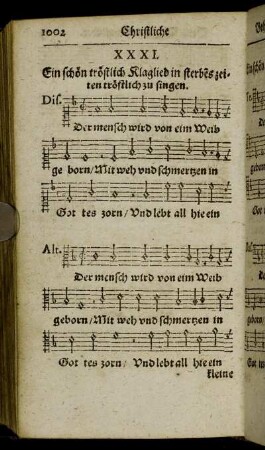 1002 Christliche
XXXI.
Ein schön tröstlich Klaglied in sterbēs zei⸗
ten tröstlich zu singen.
Dis.
Der mensch wird von eim Weib
ge born/ Mit weh vnd schmertzen in
Got tes zorn/ Vnd lebt all hie ein
Alt.
Der mensch wird von eim Weib
geborn/ Mit weh vnd schmertzen in
Got tes zorn/ Vnd lebt all hie ein
kleine